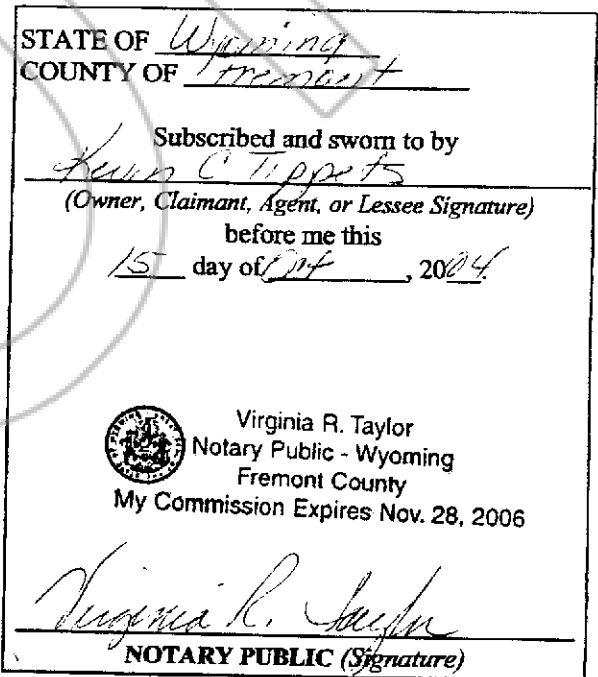 STATE OF Wyoming
COUNTY OF Fremont
Subscribed and sworn to by
Kevin C Tippets
(Owner, Claimant, Agent, or Lessee Signature)
before me this
15 day of Oct, 2004
Virginia R. Taylor
Notary Public - Wyoming
Fremont County
My Commission Expires Nov. 28, 2006
Virginia R. Taylor
NOTARY PUBLIC (Signature)